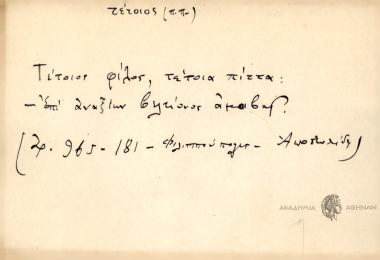 τέτοιος (π.π.)
Τέτοιος φίλος, τέτοια πίττα:
– ἐπὶ ἀναξίων βελτίονος ἀμοιβῆς.
(Χ. 965 - 181 - Φιλιππούπολις - Ἀποστολίδη)
ΑΚΑΔΗΜΙΑ ΑΘΗΝΩΝ